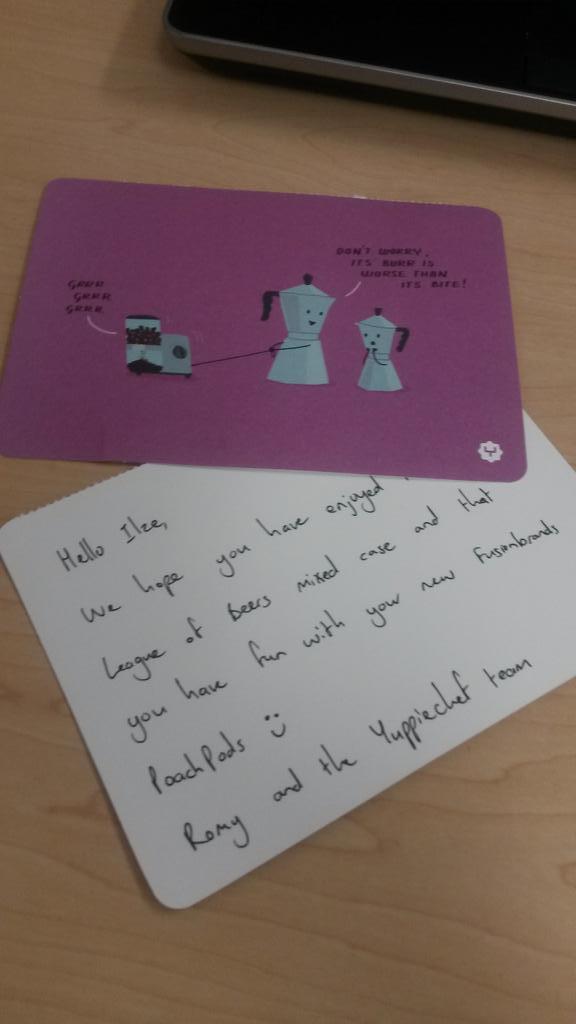 GRRR
GRRR
GRRR
DON'T WORRY,
ITS BURR IS
WORSE THAN
ITS BITE!
Hello Ilze,
We hope you have enjoyed
League of Beers mixed case and that
you have fun with your new Fusionbrands
PoachPods :)
Romy and the Yuppiechef team